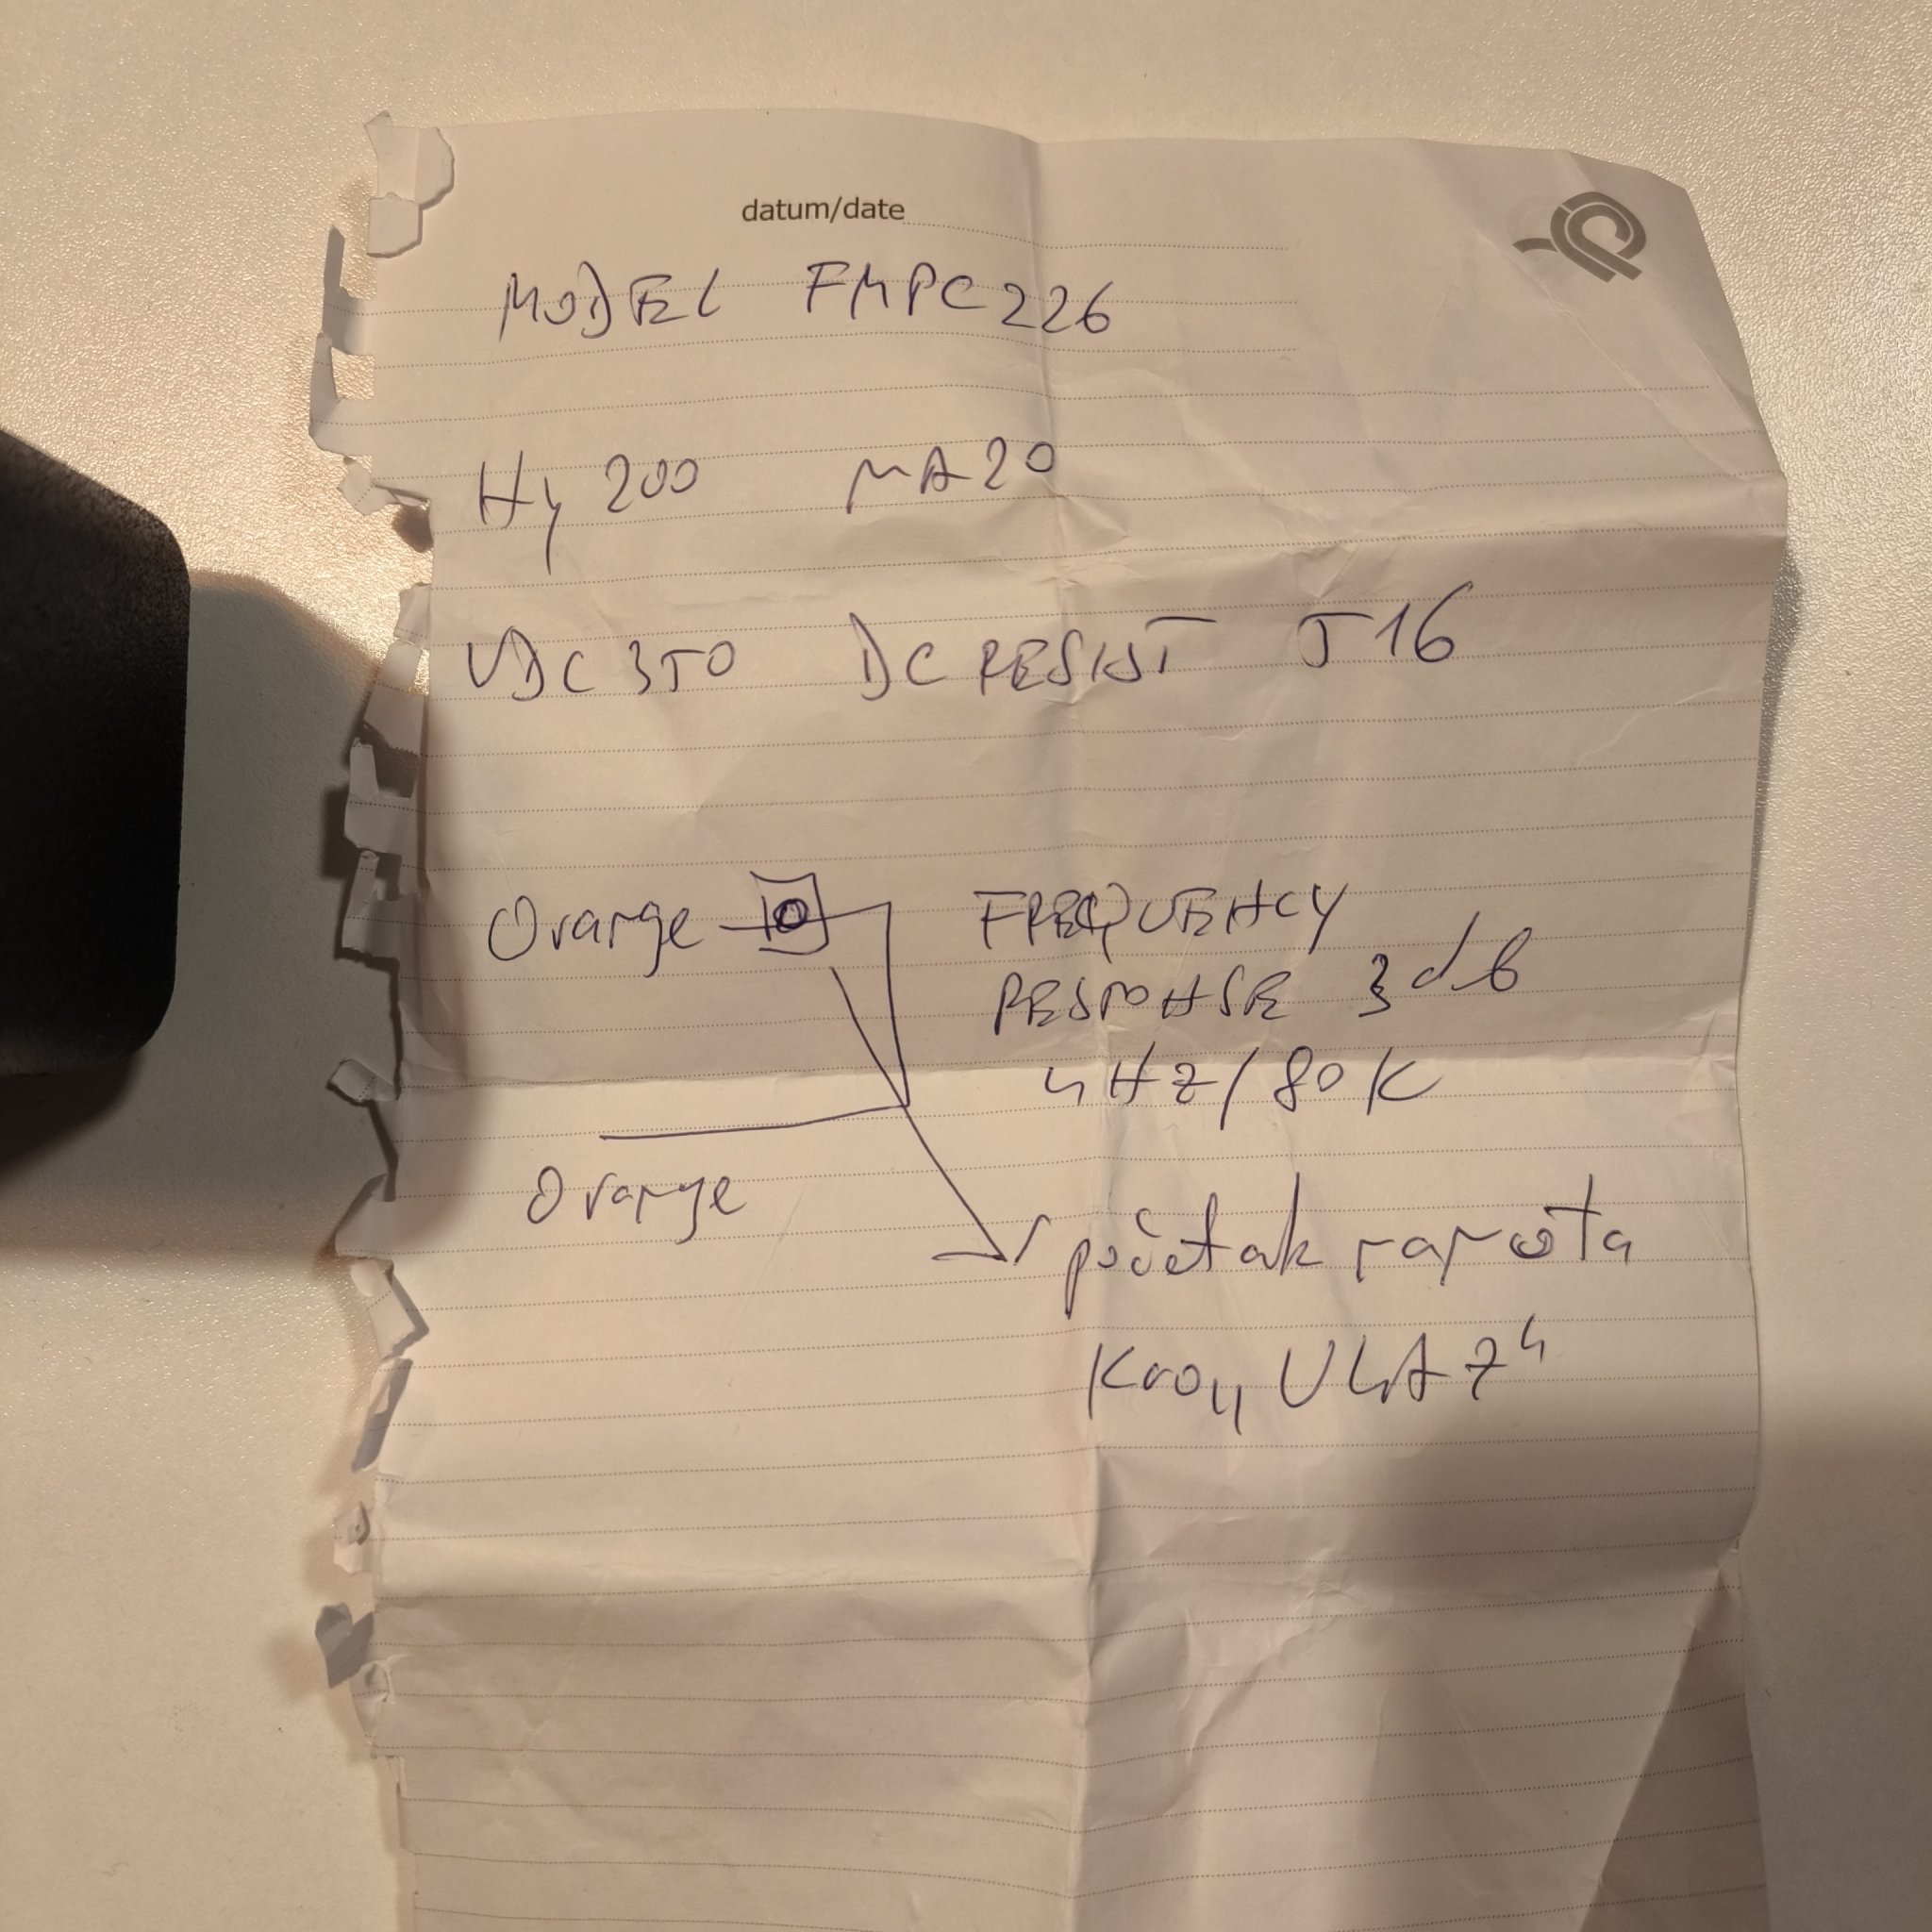 datum/date
MODEL FMPC226
Hy 200 MA20
VDC 350 DC RESIST 516
Orange FREQUENCY
RESPONSE 3db
4HZ/80K
Orange
početak namota
Kao "ULAZ"